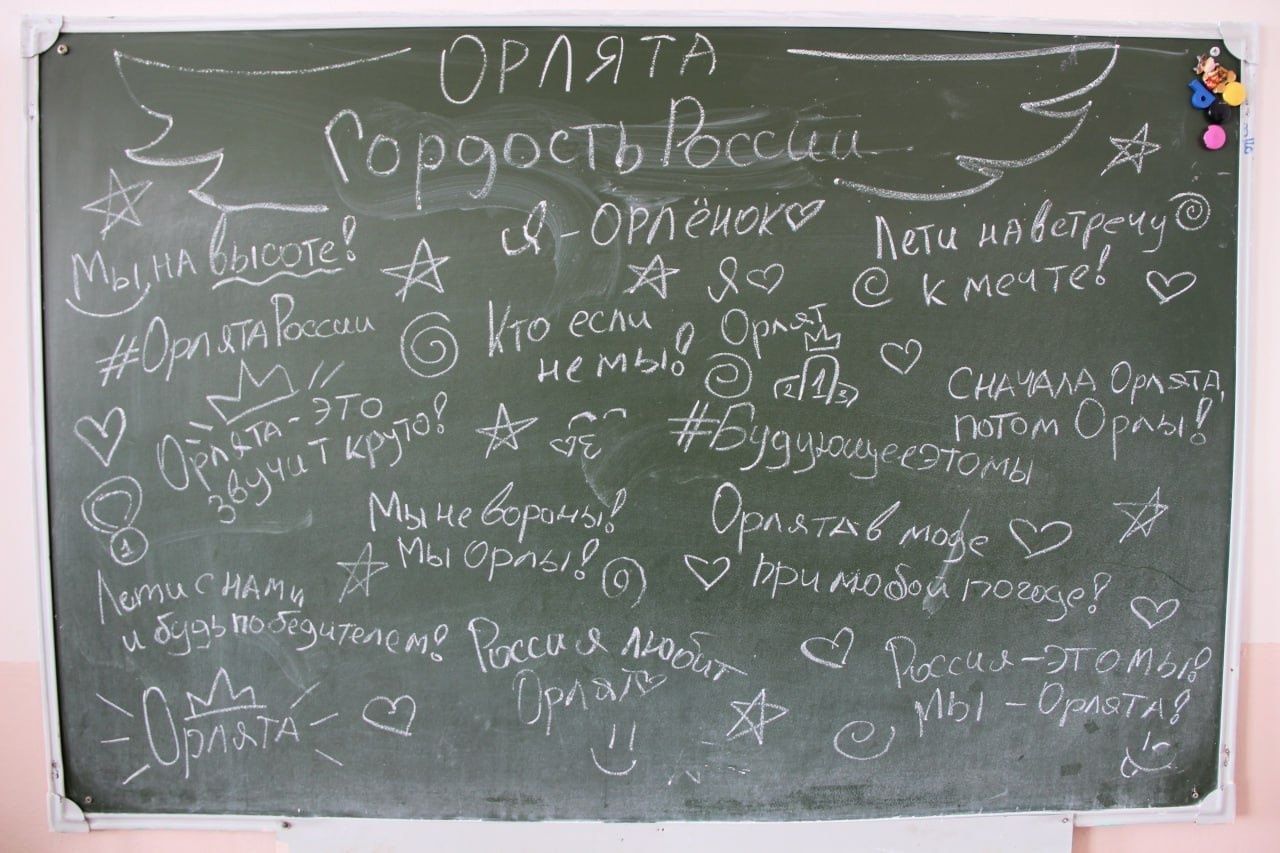 ОРЛЯТА
Гордость России
Я - ОРЛЁНОК
Лети на встречу
к мечте!
Мы на высоте!
Я
Орлят
#ОрлятаРоссии
Кто если
не мы!
2 1 3
Сначала Орлята,
потом Орлы!
Орлята - это
звучит круто!
#Будующееэтомы
Мы не вороны!
Мы Орлы!
Орлята в моде
при любой погоде!
1
Лети с нами
и будь победителем!
Россия любит
Орлят
Россия - это мы!
Мы - Орлята!
Орлята